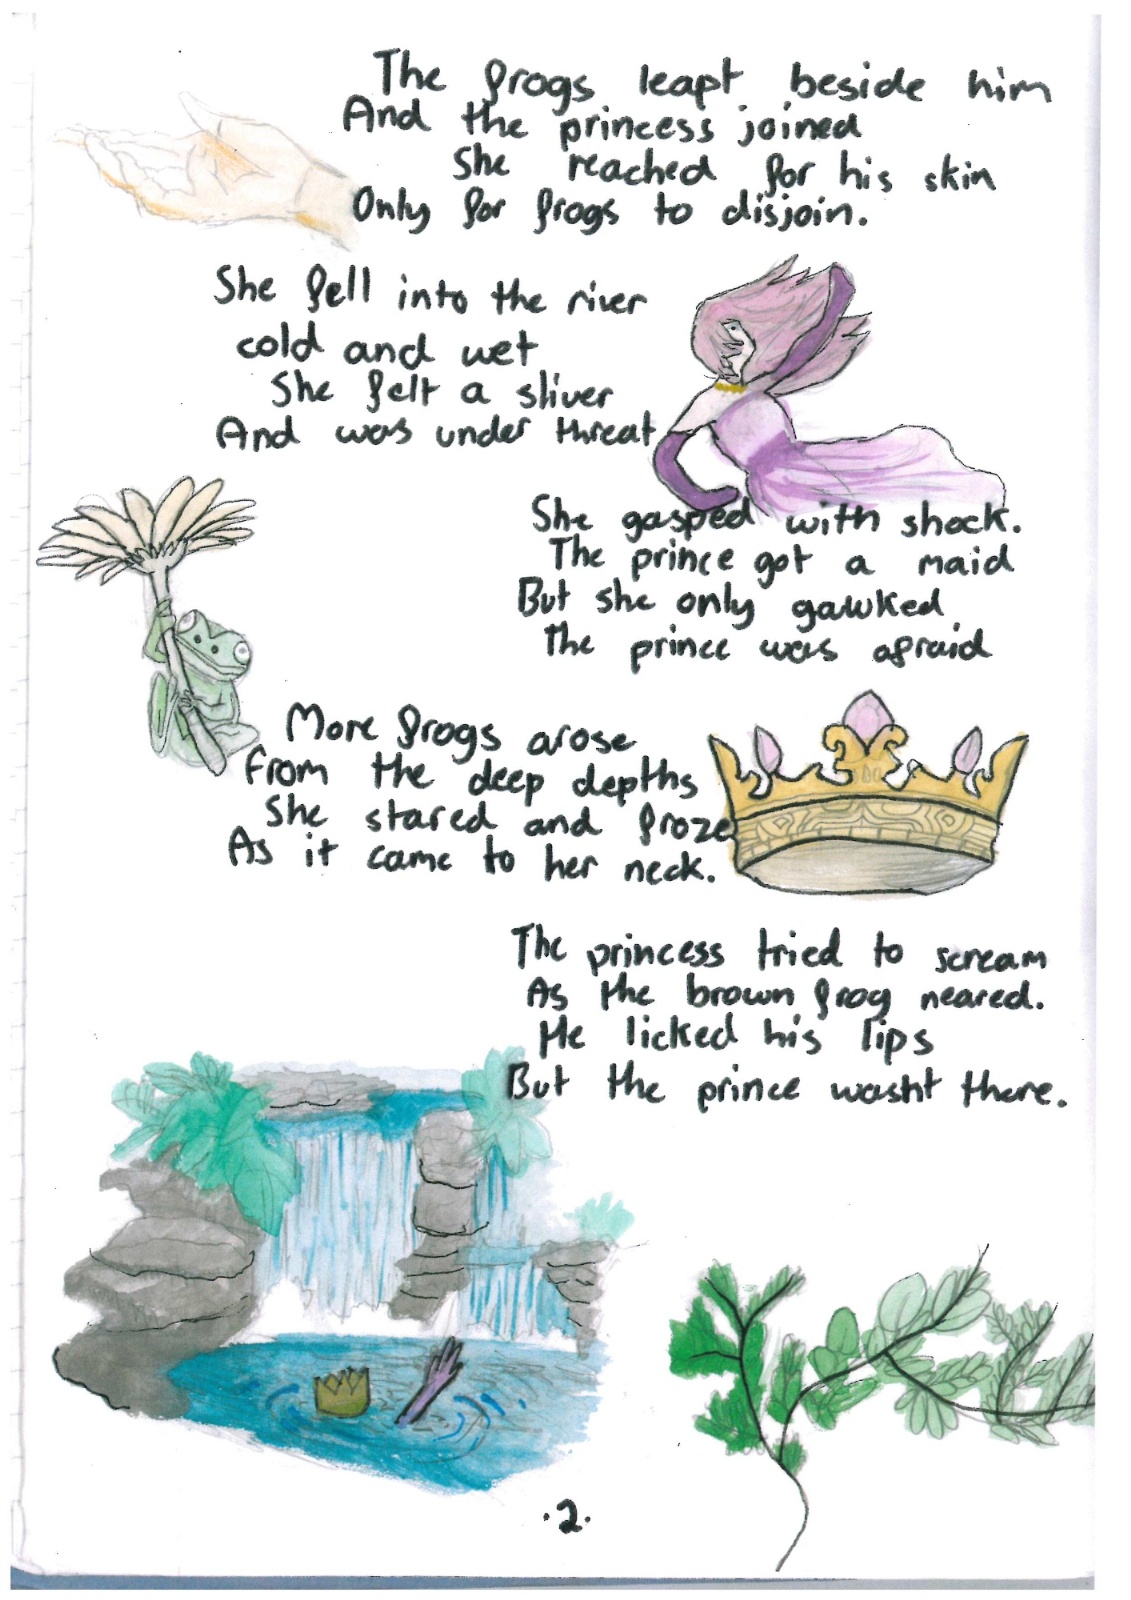 The frogs leapt beside him
And the princess joined
She reached for his skin
Only for frogs to disjoin.
She fell into the river
cold and wet
She felt a sliver
And was under threat
She gasped with shock.
The prince got a maid
But she only gawked
The prince was afraid
More frogs arose
from the deep depths
She stared and froze
As it came to her neck.
The princess tried to scream
As the brown frog neared.
He licked his lips
But the prince wasn't there.
·2·